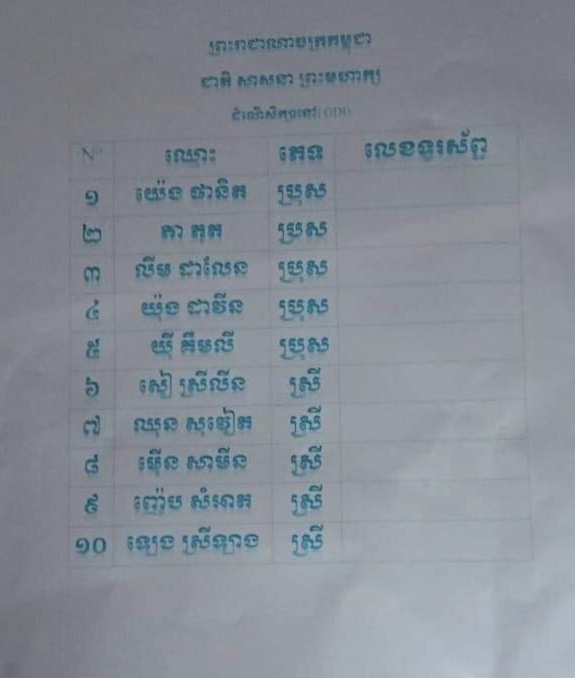 ព្រះរាជាណាចក្រកម្ពុជា
ជាតិ សាសនា ព្រះមហាក្ស
N° ឈ្មោះ ភេទ លេខទូរស័ព្ទ
១ យ៉េង ផានិត ប្រុស
២ តា តុត ប្រុស
៣ លឹម ដាលែន ប្រុស
៤ យ៉ុង ដាវីន ប្រុស
៥ យ៉ី គឹមលី ប្រុស
៦ សៀ ស្រីលីន ស្រី
៧ ឈុន សុវៀត ស្រី
៨ ម៉ើន សាមីន ស្រី
៩ ញ៉េប សំអាត ស្រី
១០ ឡេង ស្រីឡាង ស្រី